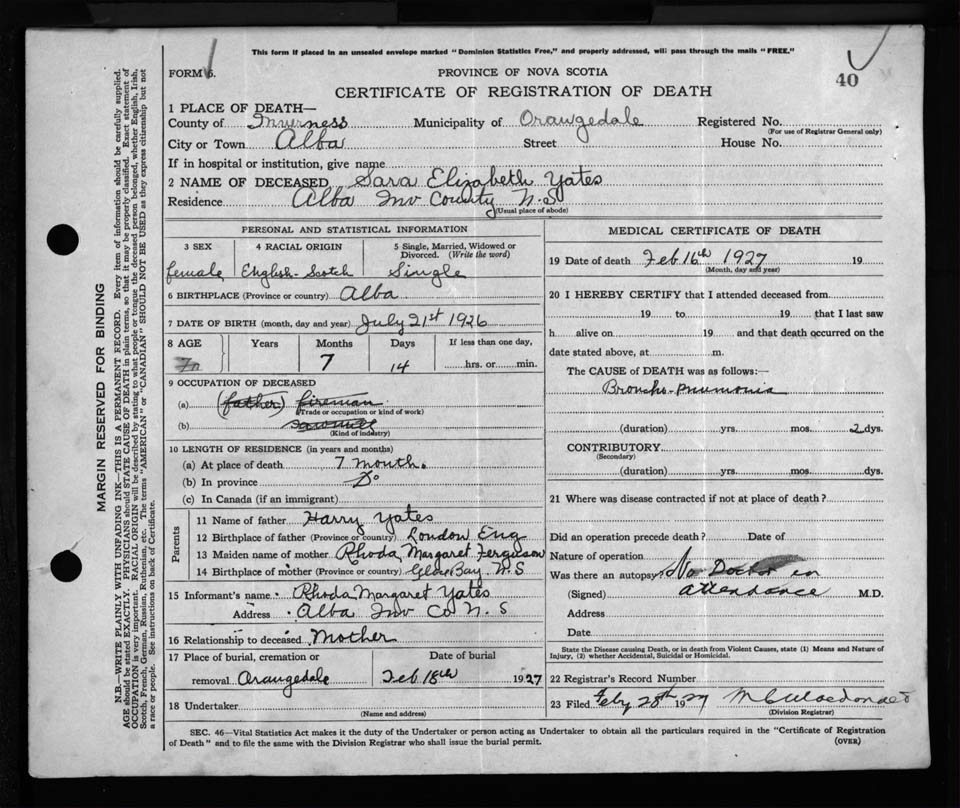 This form if placed in an unsealed envelope marked "Dominion Statistics Free," and properly addressed, will pass through the mails "FREE."
FORM 6.
PROVINCE OF NOVA SCOTIA
40
CERTIFICATE OF REGISTRATION OF DEATH
1 PLACE OF DEATH—
County of Inverness Municipality of Orangedale Registered No.
(For use of Registrar General only)
City or Town Alba Street House No.
If in hospital or institution, give name
2 NAME OF DECEASED Sara Elizabeth Yates
Residence Alba Inv County N.S
(Usual place of abode)
PERSONAL AND STATISTICAL INFORMATION
3 SEX 4 RACIAL ORIGIN 5 Single, Married, Widowed or Divorced. (Write the word)
female English-Scotch Single
6 BIRTHPLACE (Province or country) Alba
7 DATE OF BIRTH (month, day and year) July 21st 1926
8 AGE Years Months Days If less than one day,
7 14 hrs. or min.
9 OCCUPATION OF DECEASED
(a) (father) fireman
(Trade or occupation or kind of work)
(b) sawmill
(Kind of industry)
10 LENGTH OF RESIDENCE (in years and months)
(a) At place of death 7 month.
(b) In province Do
(c) In Canada (if an immigrant)
Parents
11 Name of father Harry Yates
12 Birthplace of father (Province or country) London Eng
13 Maiden name of mother Rhoda Margaret Ferguson
14 Birthplace of mother (Province or country) Glace Bay N.S
15 Informant's name Rhoda Margaret Yates
Address Alba Inv Co N.S
16 Relationship to deceased Mother
17 Place of burial, cremation or removal Orangedale Date of burial Feb 18th 1927
18 Undertaker
(Name and address)
MEDICAL CERTIFICATE OF DEATH
19 Date of death Feb 16th 1927 19
(Month, day and year)
20 I HEREBY CERTIFY that I attended deceased from
19 to 19 that I last saw
h alive on 19 and that death occurred on the
date stated above, at m.
The CAUSE of DEATH was as follows:—
Broncho-pnumonia
(duration) yrs. mos. 2 dys.
CONTRIBUTORY
(Secondary)
(duration) yrs. mos. dys.
21 Where was disease contracted if not at place of death?
Did an operation precede death? Date of
Nature of operation
Was there an autopsy? No Doctor in
(Signed) attendance M.D.
Address
Date
State the Disease causing Death, or in death from Violent Causes, state (1) Means and Nature of
Injury, (2) whether Accidental, Suicidal or Homicidal.
22 Registrar's Record Number
23 Filed Feby 28th 1927
(Division Registrar)
SEC. 46—Vital Statistics Act makes it the duty of the Undertaker or person acting as Undertaker to obtain all the particulars required in the "Certificate of Registration
of Death" and to file the same with the Division Registrar who shall issue the burial permit.
(OVER)
MARGIN RESERVED FOR BINDING
N.B.—WRITE PLAINLY WITH UNFADING INK—THIS IS A PERMANENT RECORD. Every item of information should be carefully supplied.
AGE should be stated EXACTLY. PHYSICIANS should STATE CAUSE OF DEATH in plain terms, so that it may be properly classified. Exact statement of
OCCUPATION is very important. RACIAL ORIGIN will be described by stating to what people or tongue the deceased person belonged, whether English, Irish,
Scotch, French, German, Russian, Ruthenian, etc. The terms "AMERICAN" or "CANADIAN" SHOULD NOT BE USED as they express citizenship but not
a race or people. See instructions on back of Certificate.